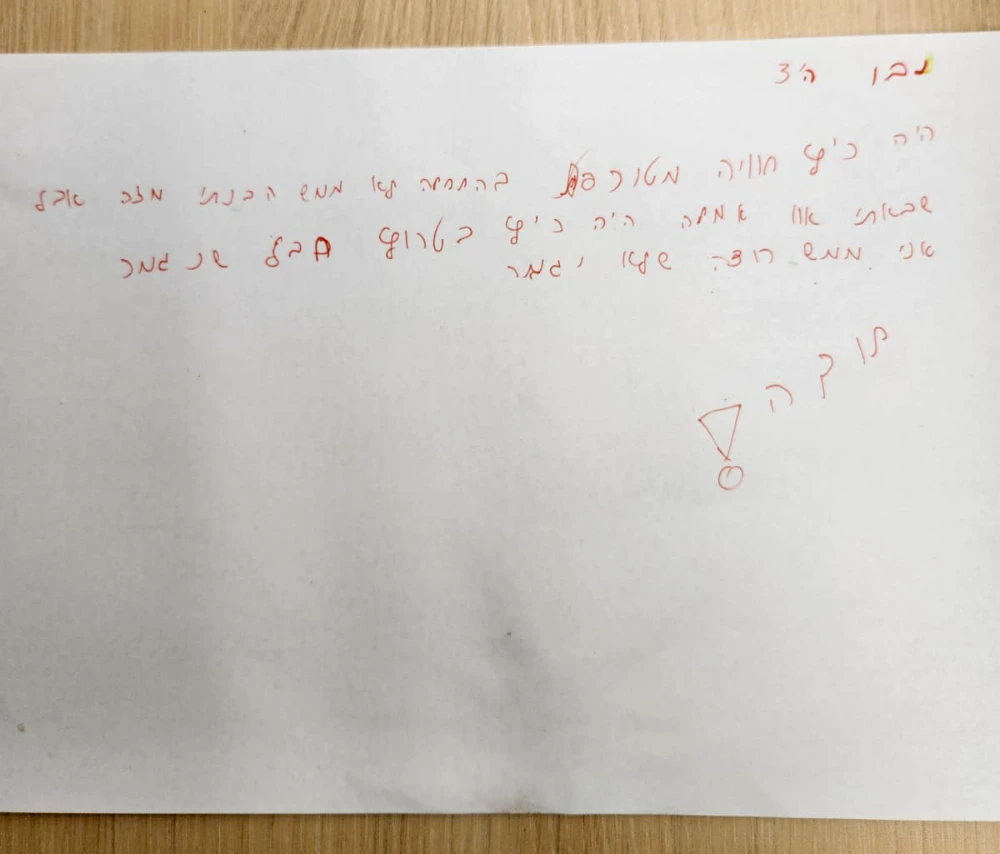 נבו ה'3
היה כיף חוויה מטורפת בהתחלה לא ממש הבנתי מזה אבל
שבאתי או אמלה היה כיף בטרוף חבל שנגמר
אני ממש רוצה שלא יגמר
תודה!